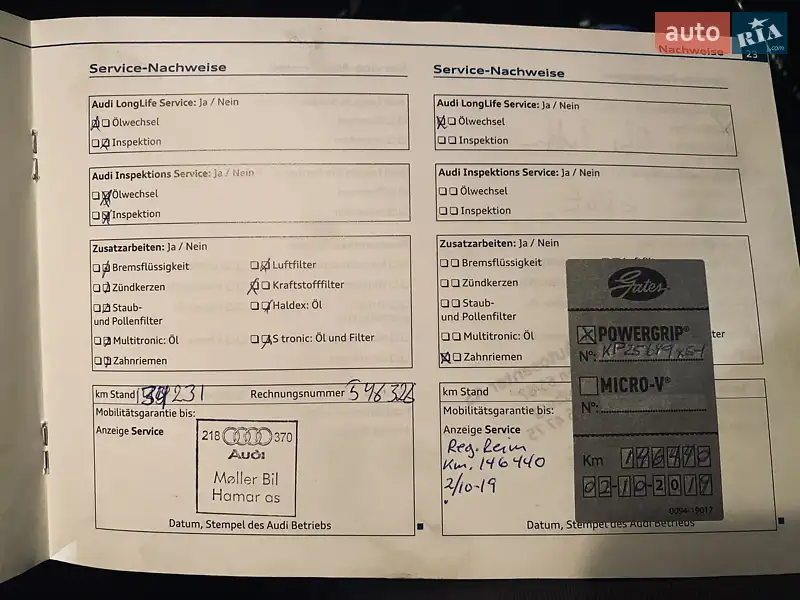 auto RIA
Nachweise
.com
23
Service-Nachweise
Audi LongLife Service: Ja / Nein
Ölwechsel
Inspektion
Audi Inspektions Service: Ja / Nein
Ölwechsel
Inspektion
Zusatzarbeiten: Ja / Nein
Bremsflüssigkeit
Luftfilter
Zündkerzen
Kraftstofffilter
Staub-
und Pollenfilter
Haldex: Öl
Multitronic: Öl
S tronic: Öl und Filter
Zahnriemen
km Stand
Rechnungsnummer 546326
Mobilitätsgarantie bis:
Anzeige Service
218 370
Audi
Møller Bil
Hamar as
Datum, Stempel des Audi Betriebs
Service-Nachweise
Audi LongLife Service: Ja / Nein
Ölwechsel
Inspektion
Audi Inspektions Service: Ja / Nein
Ölwechsel
Inspektion
Zusatzarbeiten: Ja / Nein
Bremsflüssigkeit
Zündkerzen
Staub-
und Pollenfilter
Multitronic: Öl
Zahnriemen
km Stand
Mobilitätsgarantie bis:
Anzeige Service
Reg. Reim
Km. 146440
2/10-19
Datum, Stempel des Audi Betriebs
Gates
POWERGRIP®
N°: KP25649XS-1
MICRO-V®
N°:
Km 146440
02-10-2019
0094-19017